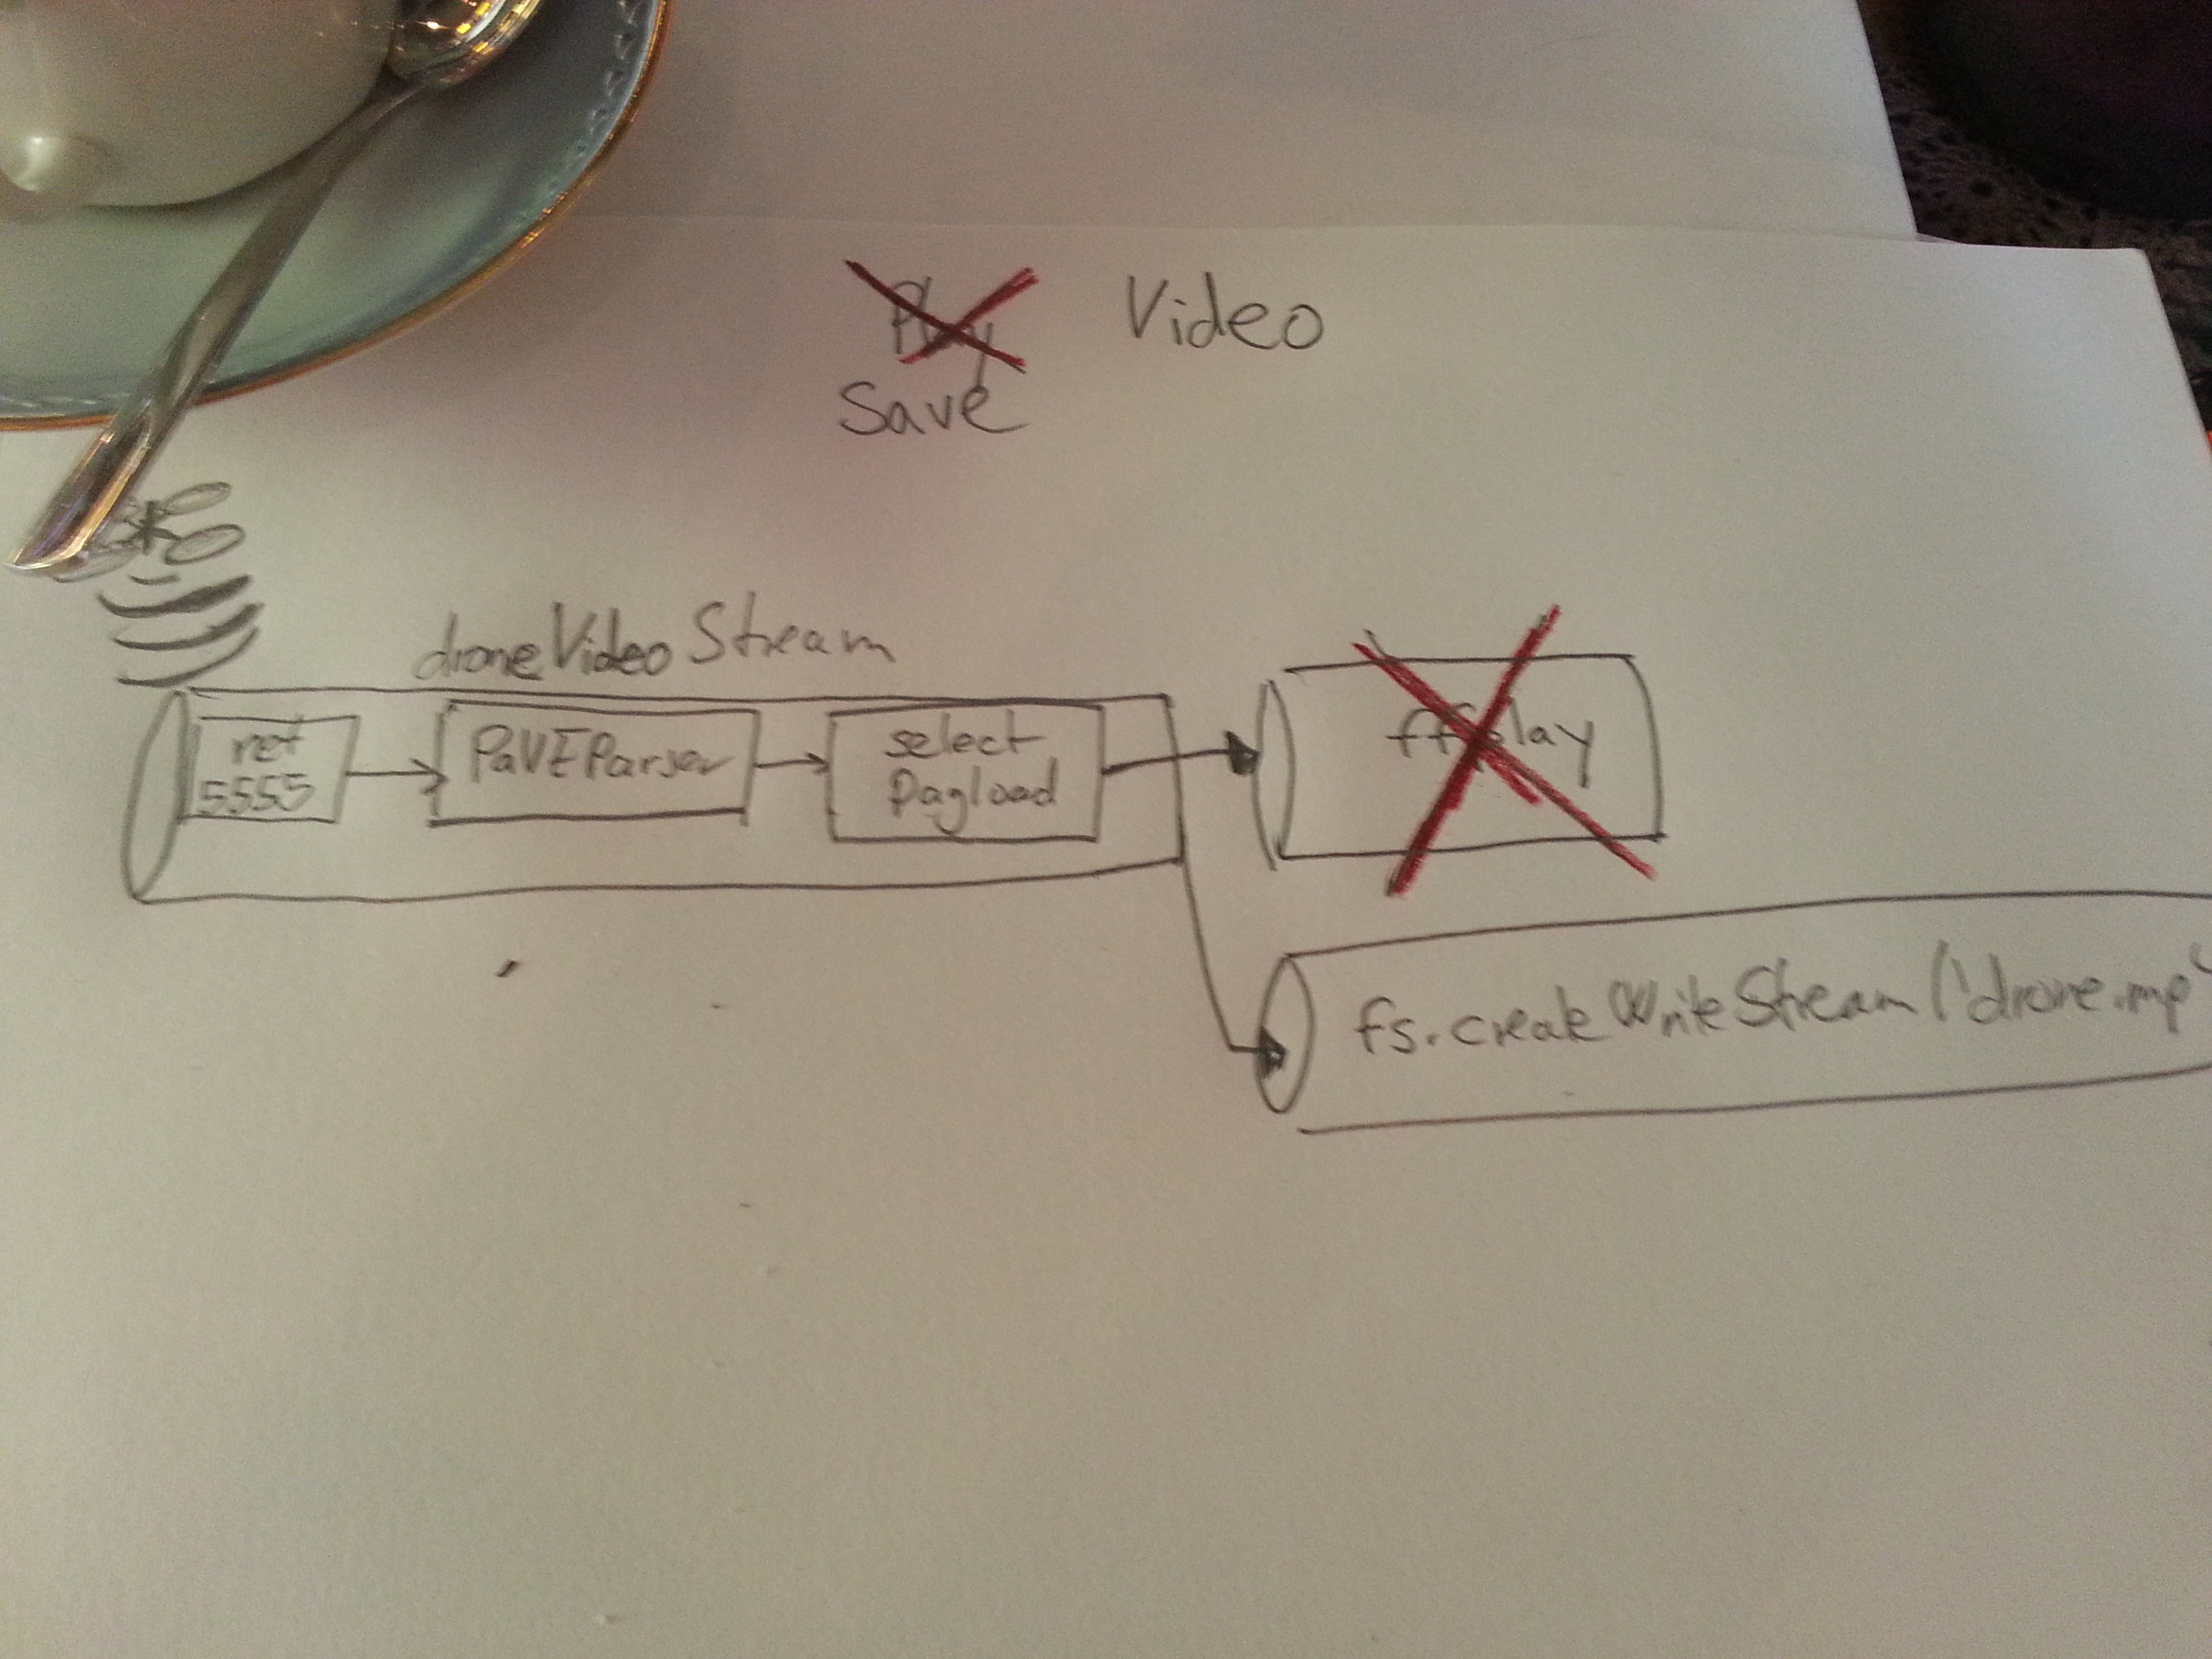 Play Video
Save
droneVideoStream
net
5555
PaVEParser
select
Payload
ffplay
fs.createWriteStream('drone.mp4